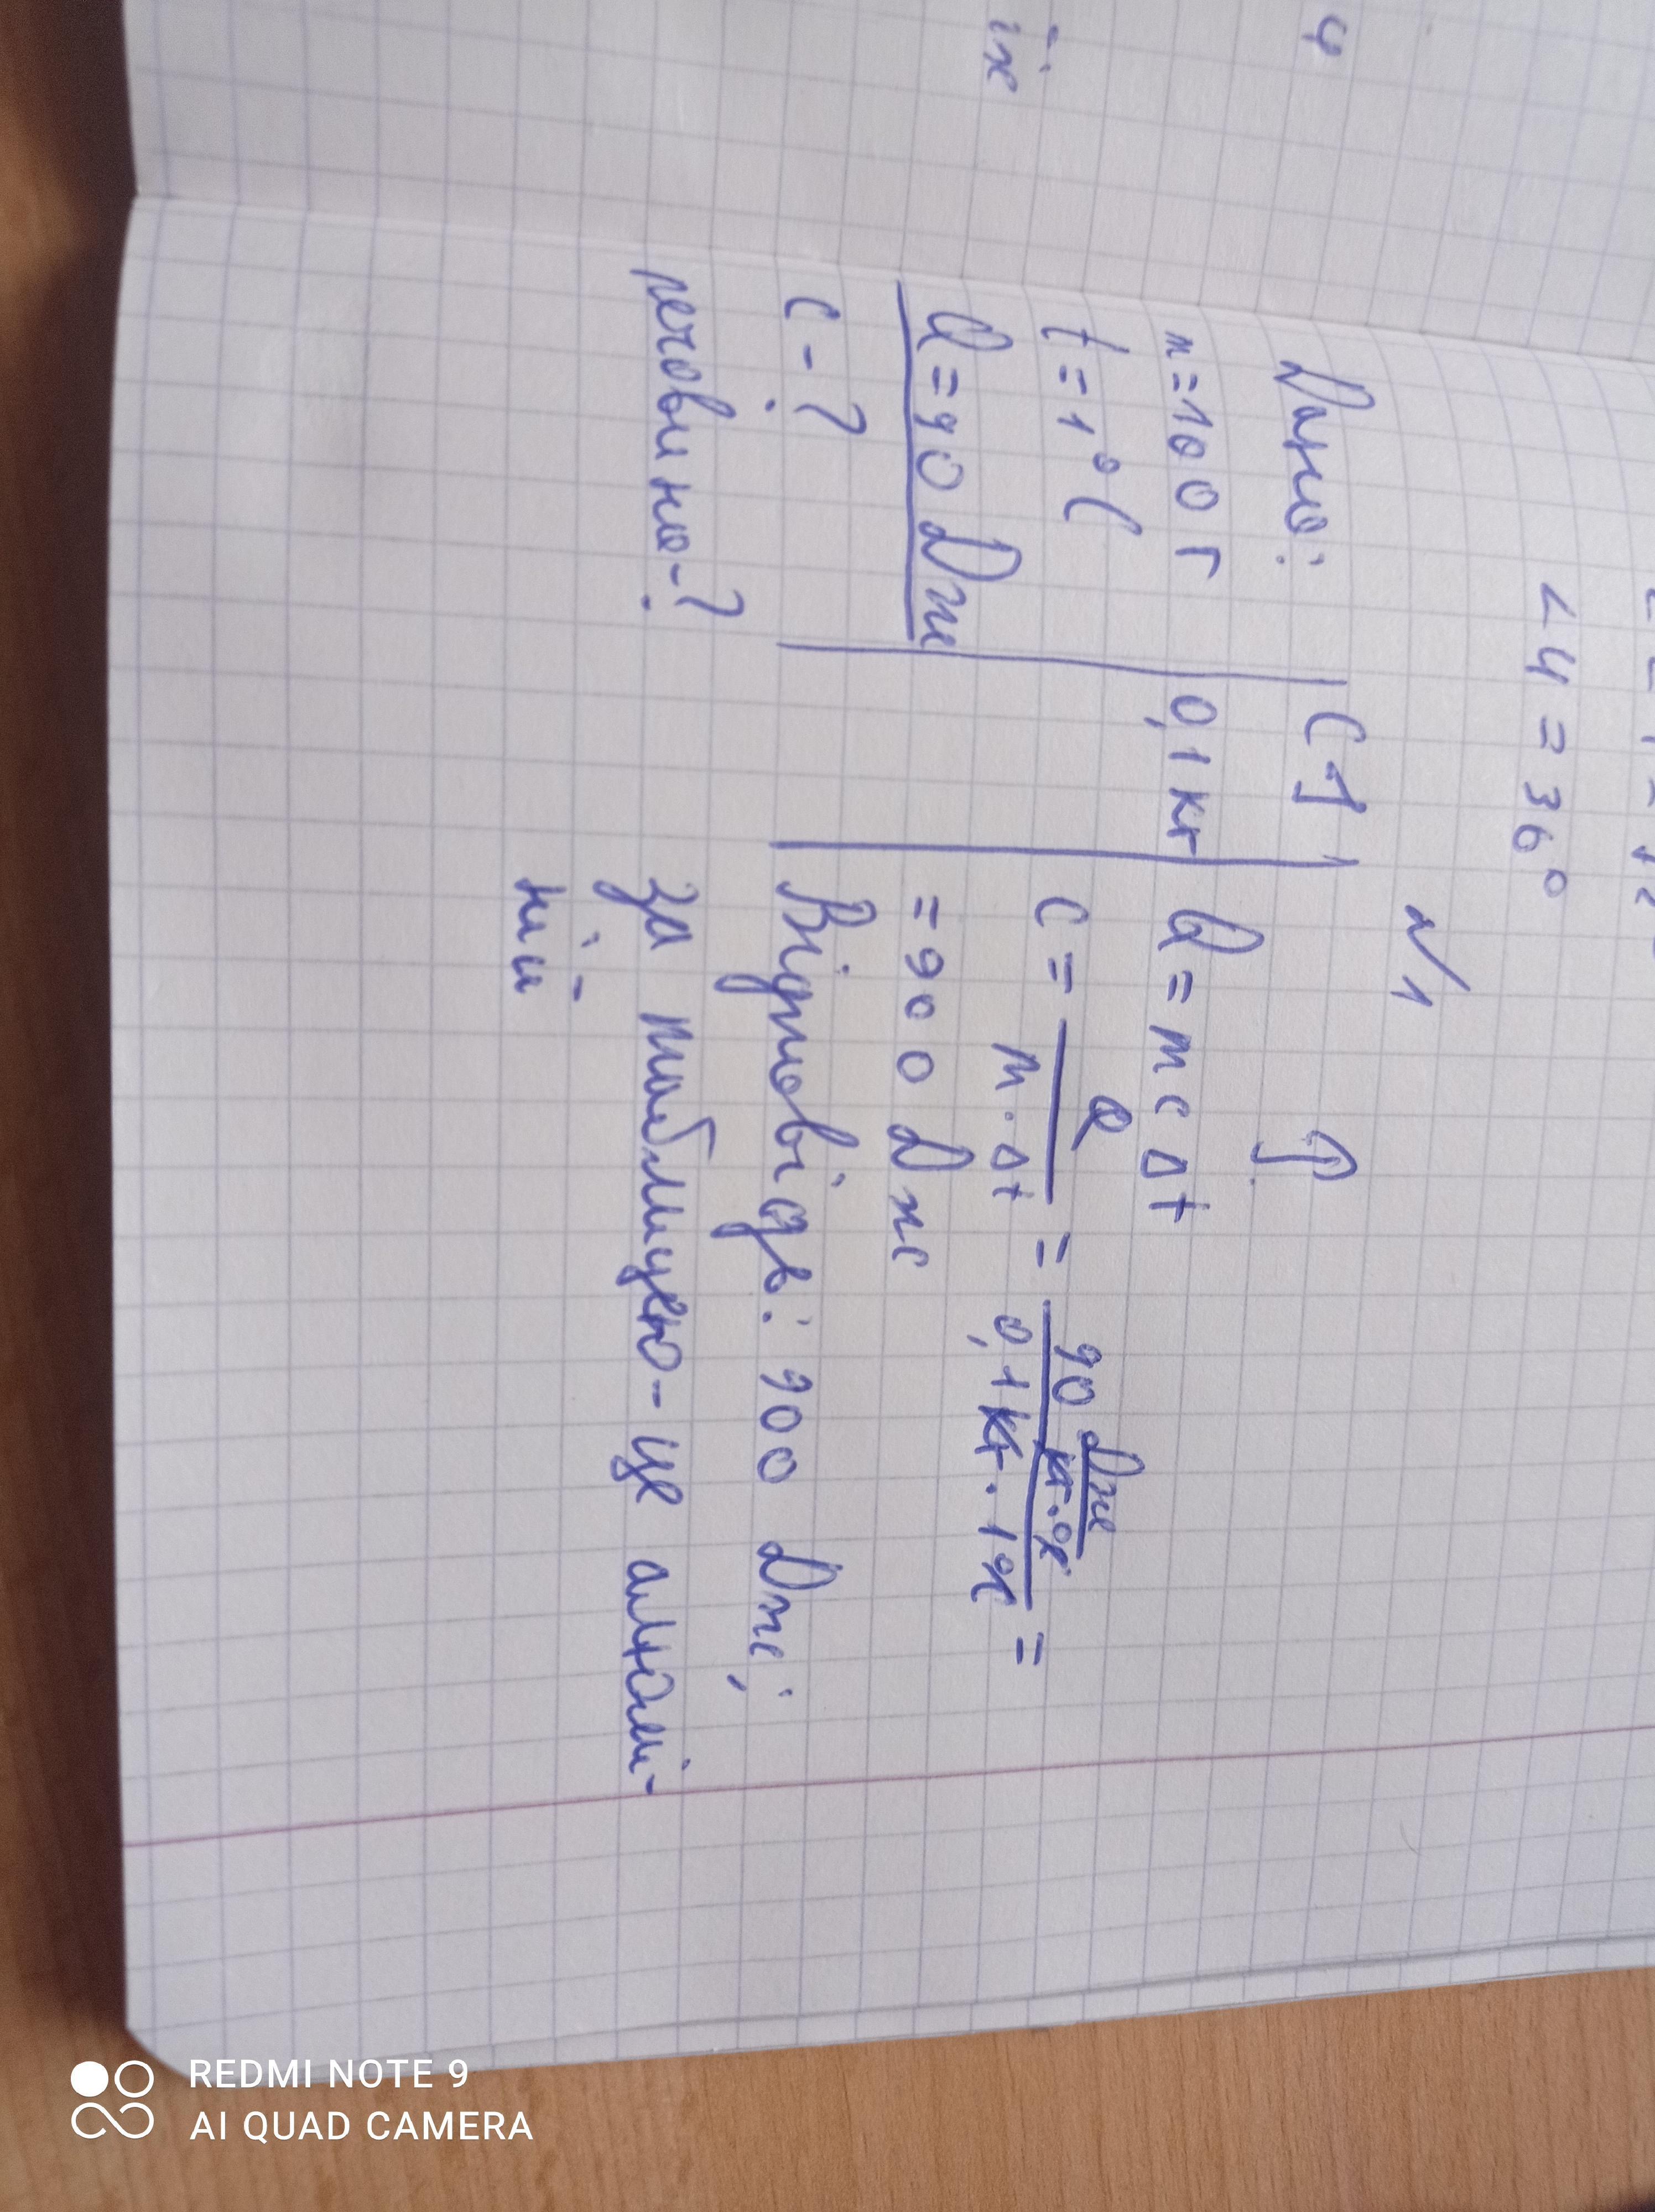 4
їх
∠4 = 36°
№1
Дано:
m = 100 г
t = 1°C
Q = 90 Дж
C - ?
речовина - ?
СІ
0,1 кг
Р.
Q = mcΔt
C = Q / m · Δt = 90 Дж / кг·°C / 0,1 кг · 1°C =
= 900 Дж
Відповідь: 900 Дж;
за таблицею - це алюмі-
ній
REDMI NOTE 9
AI QUAD CAMERA